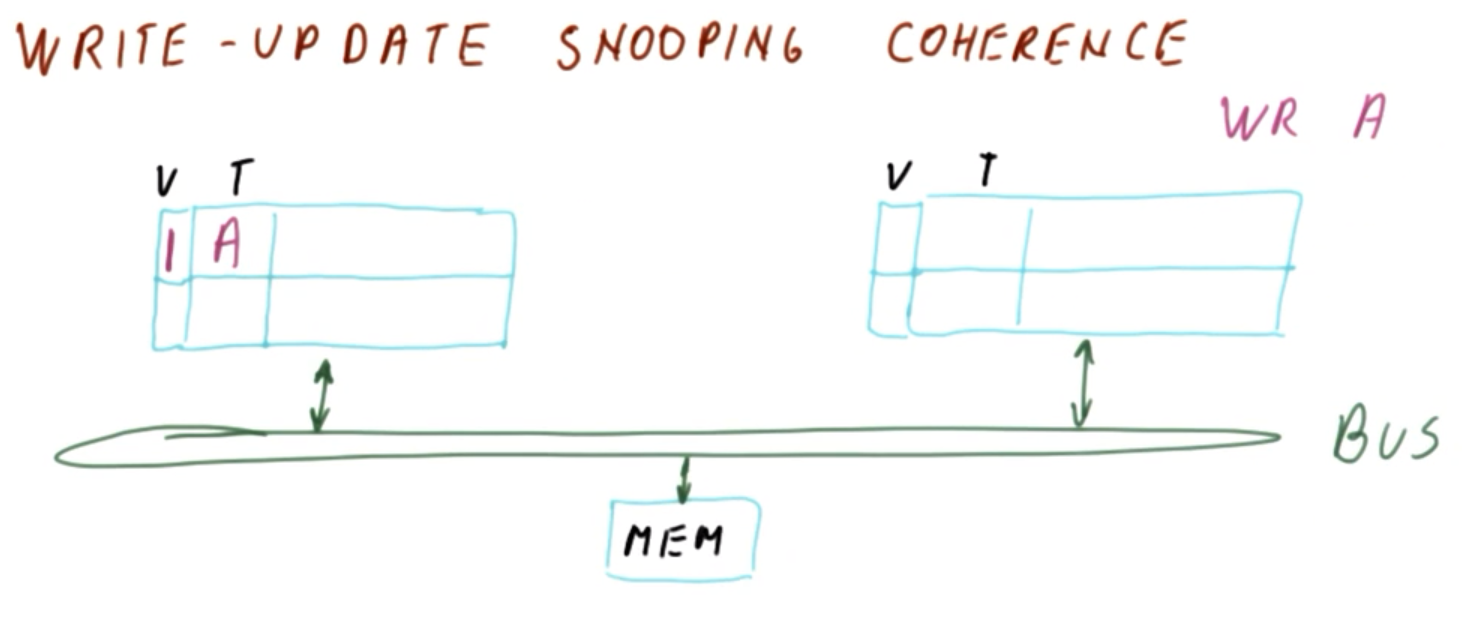 WRITE-UPDATE SNOOPING COHERENCE
WR A
V T
V T
1 A
BUS
MEM